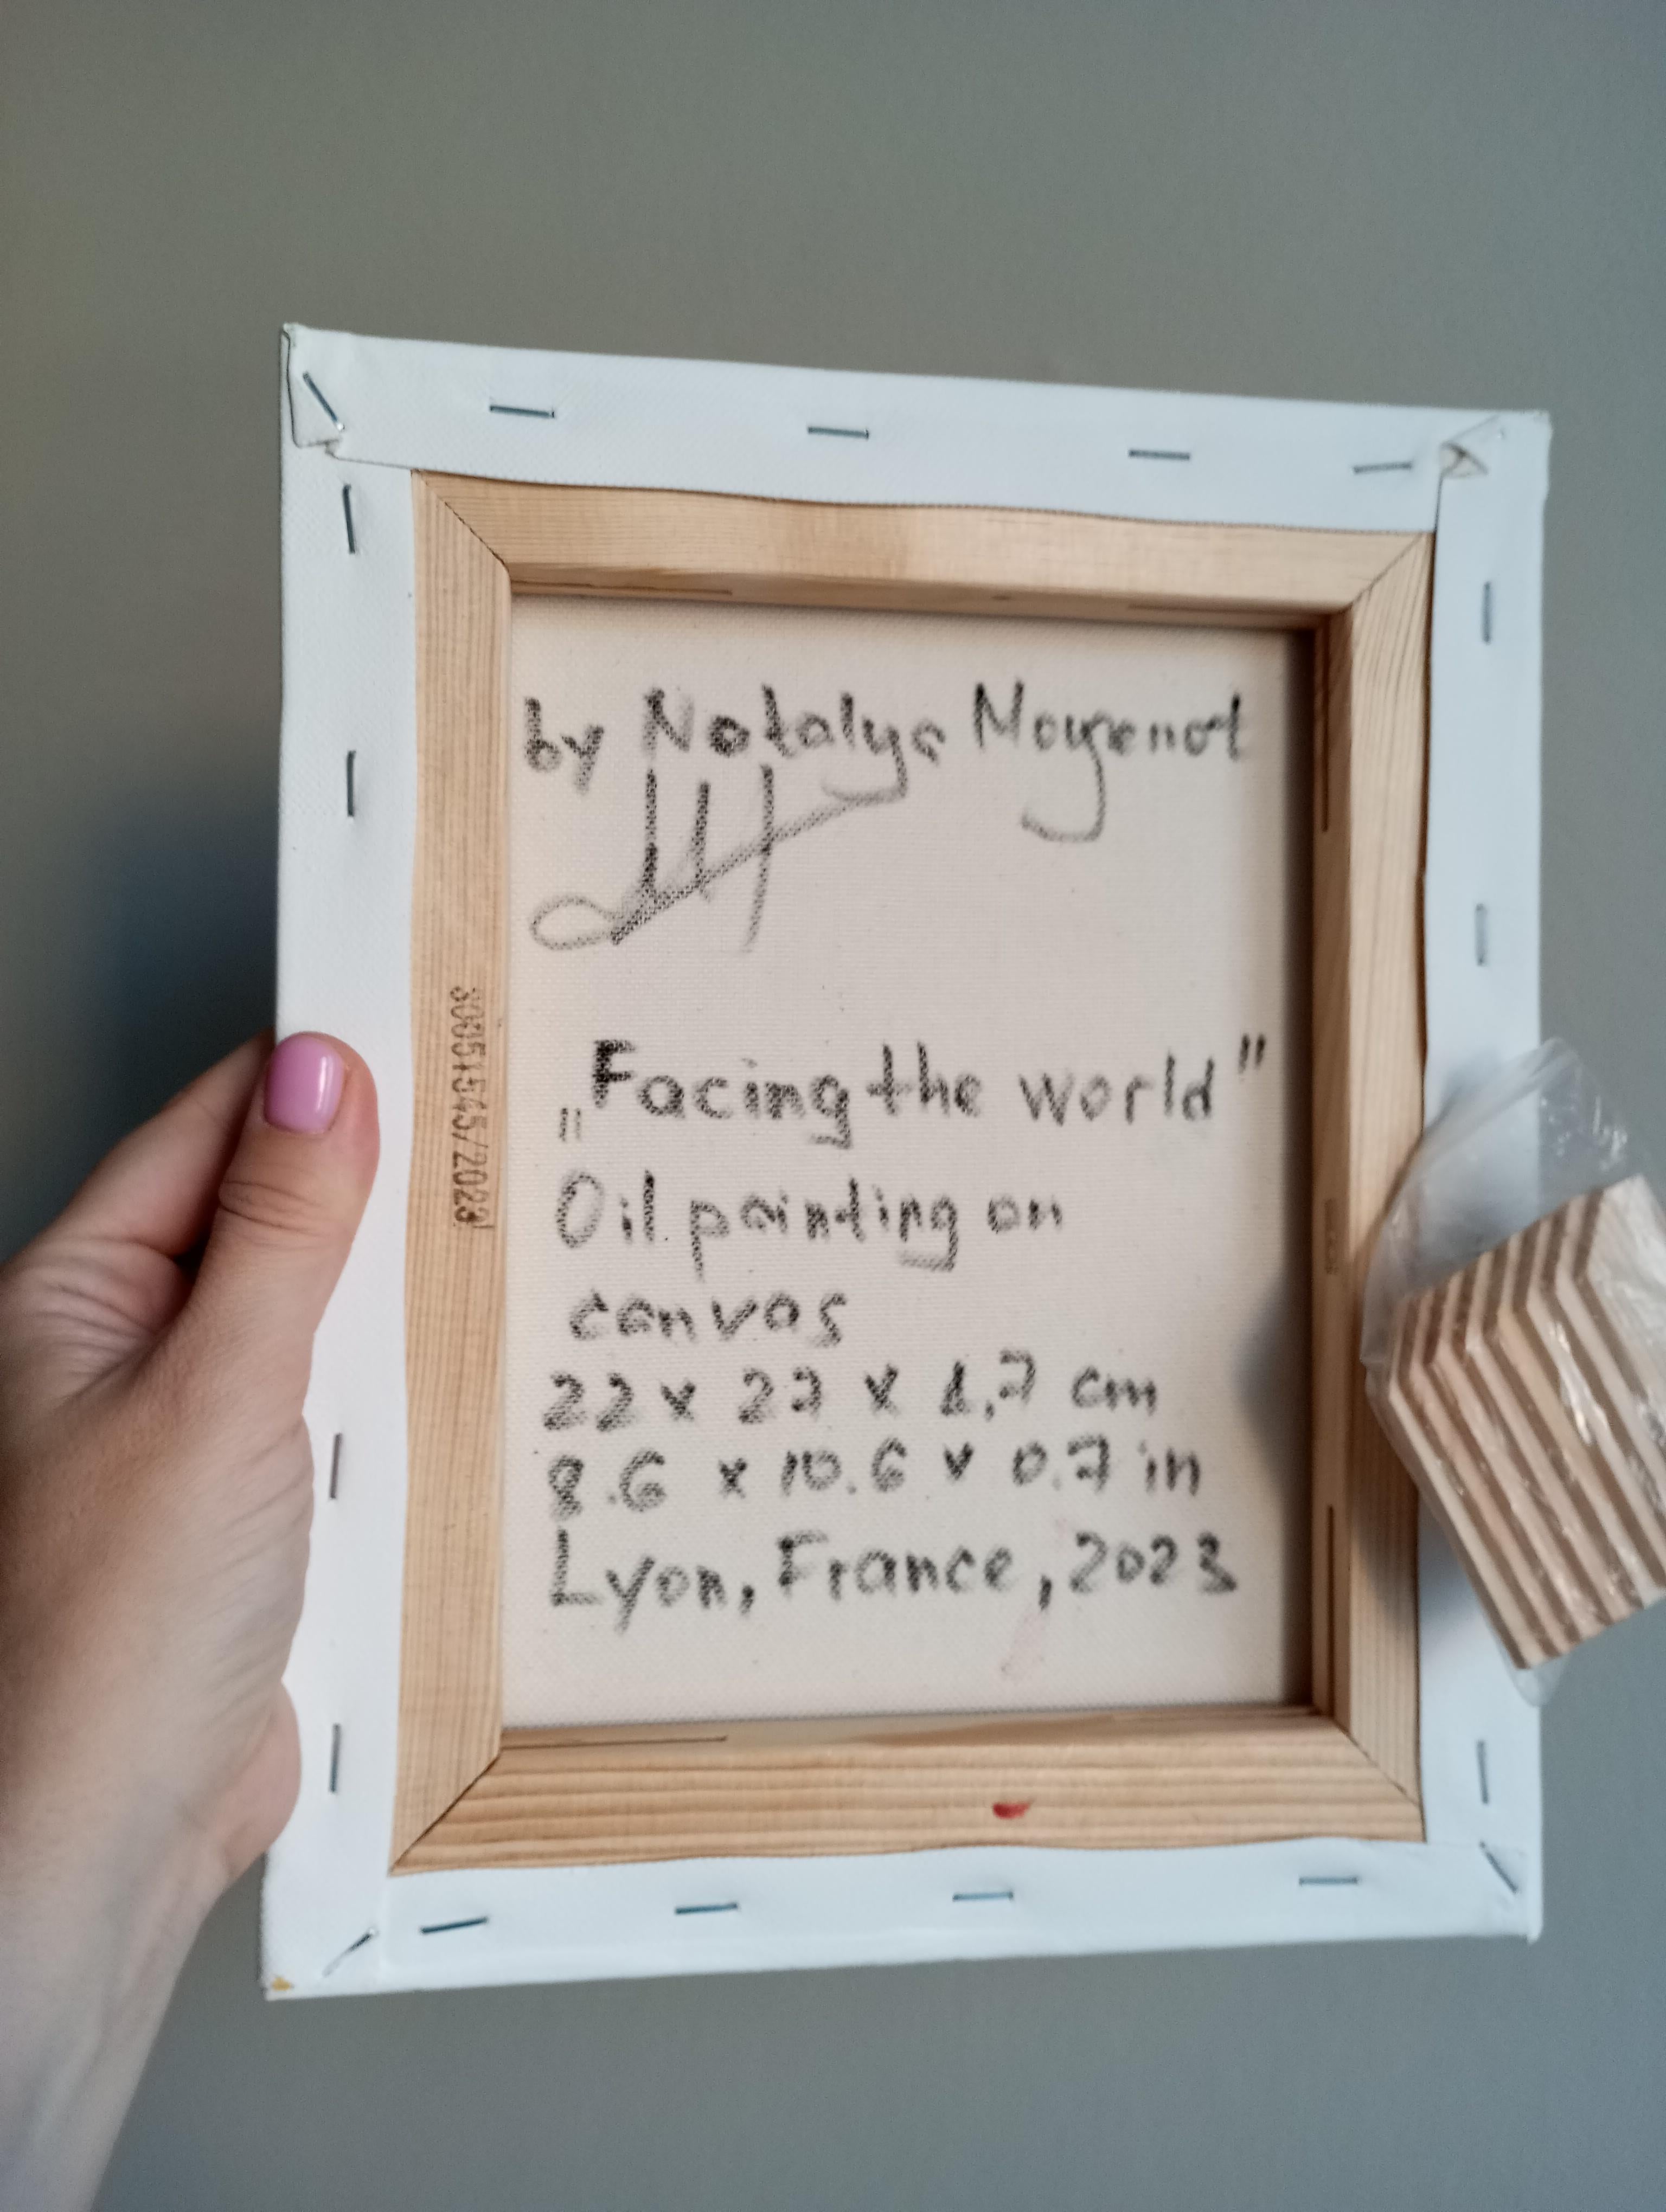 by Natalya Moyenot
„Facing the world"
Oil painting on
canvas
22 x 27 x 1,7 cm
8.6 x 10.6 x 0.7 in
Lyon, France, 2023